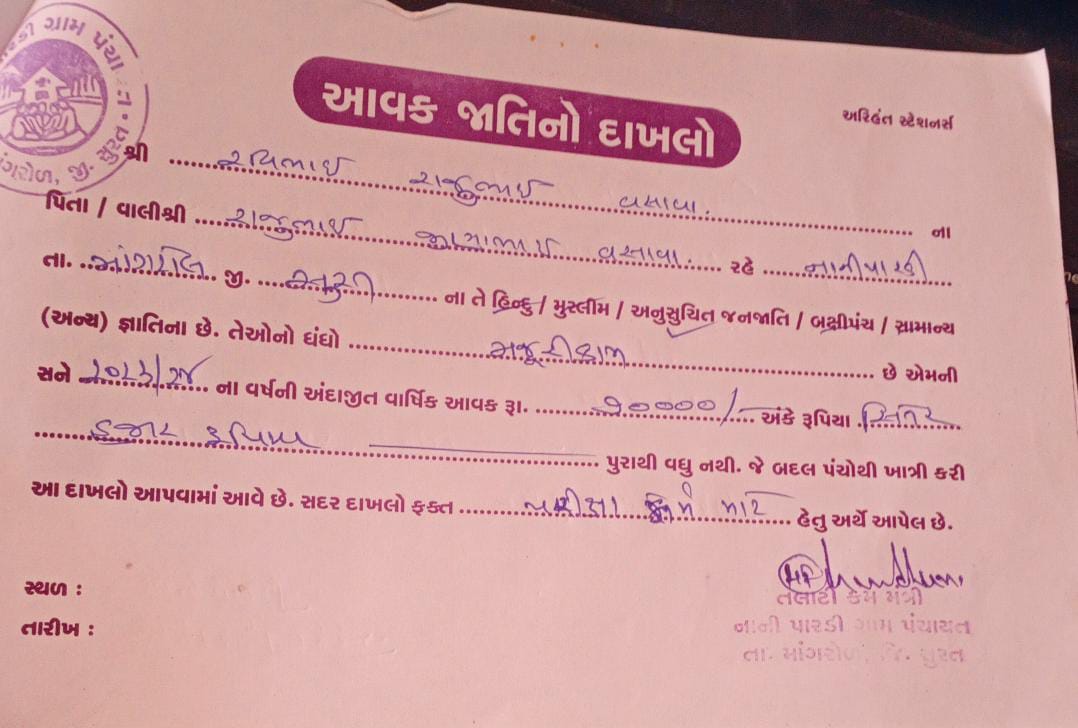 આવક જાતિનો દાખલો
અરિહંત સ્ટેશનર્સ
ગ્રામ પંચાયત
માંગરોળ, જી. સુરત
શ્રી રાજુભાઈ વસાવા. ના
પિતા / વાલીશ્રી રાજુભાઈ વસાવા. રહે નાનીપારડી
તા. માંગરોળ જી. સુરત ના તે હિન્દુ / મુસ્લીમ / અનુસુચિત જનજાતિ / બક્ષીપંચ / સામાન્ય
(અન્ય) જ્ઞાતિના છે. તેઓનો ધંધો મજૂરીકામ છે એમની
સને ૨૦૨૩/૨૪ ના વર્ષની અંદાજીત વાર્ષિક આવક રૂા. ૭૦૦૦૦/- અંકે રૂપિયા સિત્તેર
હજાર રૂપિયા પુરાથી વધુ નથી. જે બદલ પંચોથી ખાત્રી કરી
આ દાખલો આપવામાં આવે છે. સદર દાખલો ફક્ત માટે હેતુ અર્થે આપેલ છે.
સ્થળ :
તારીખ :
તલાટી કમ મંત્રી
નાની પારડી ગ્રામ પંચાયત
તા. માંગરોળ, જિ. સુરત